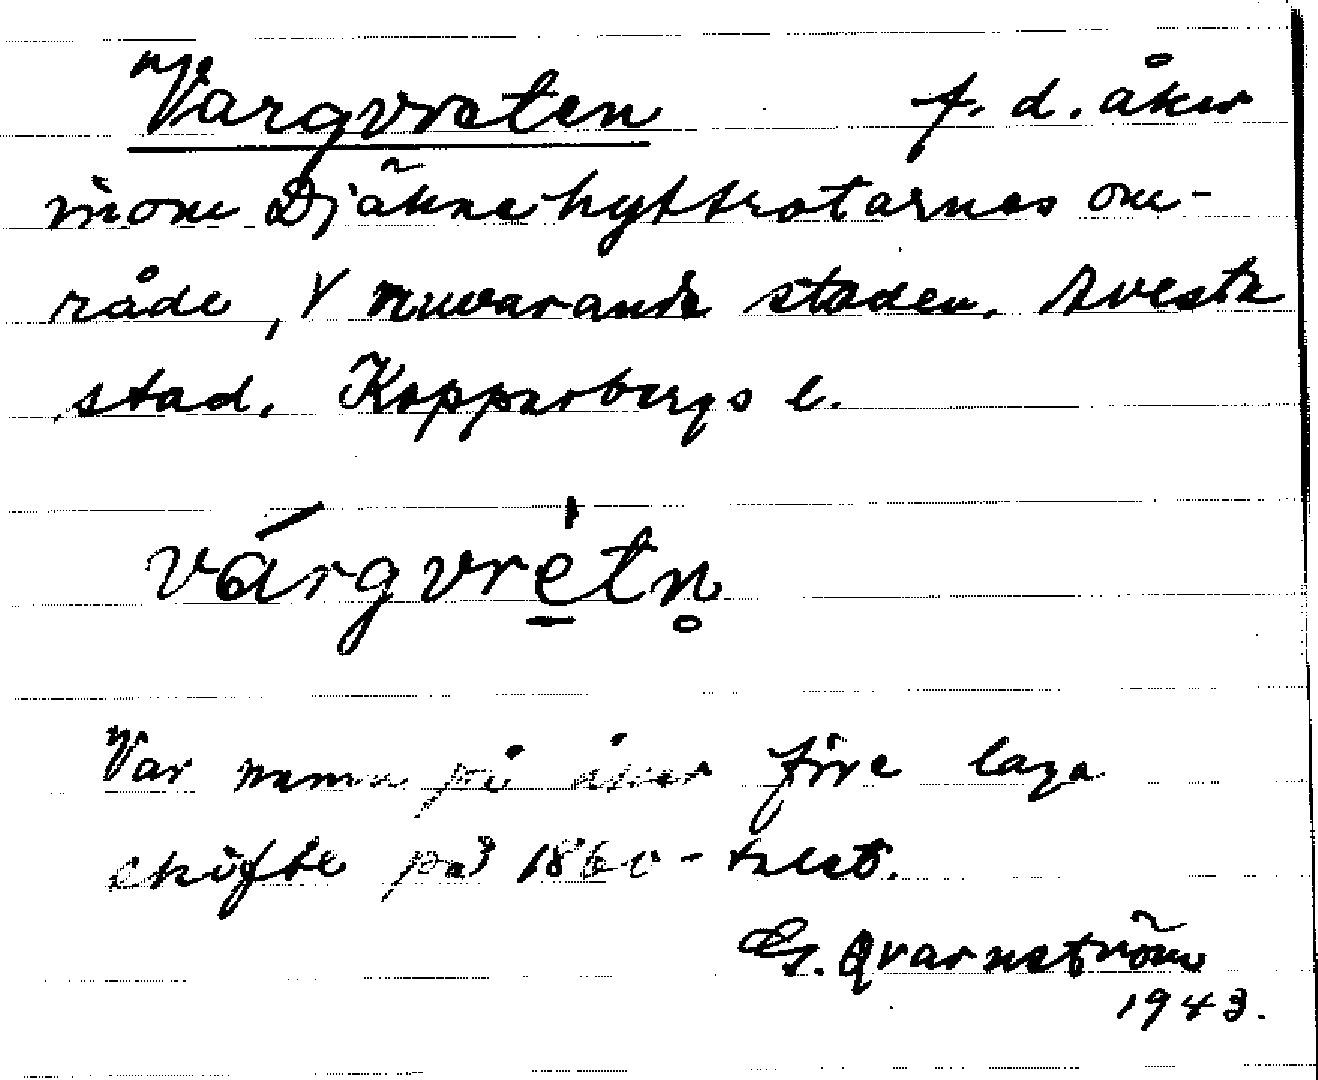 Vargvreten f. d. åker
inom Djäknehyttrotarnas om-
råde, V nuvarande staden. Avesta
stad. Kopparbergs l.
várgvrètn̥
Var namn på åker före laga
skifte på 1860-talet.
G. Qvarnström
1943.